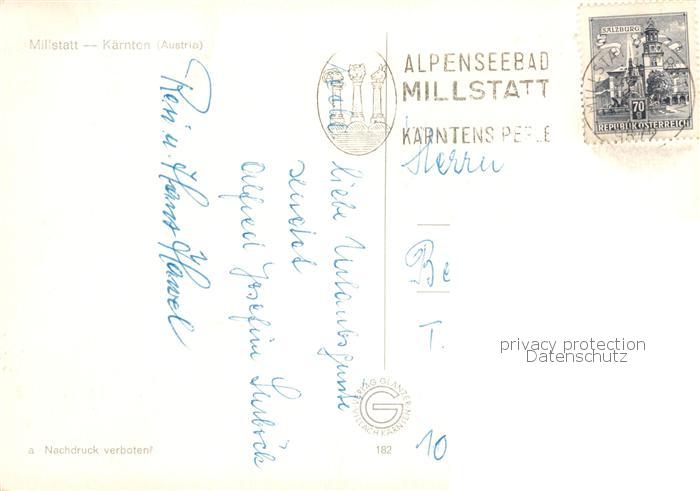 Millstatt — Kärnten (Austria)
ALPENSEEBAD
MILLSTATT
KÄRNTENS PERLE
SALZBURG
70
REPUBLIK ÖSTERREICH
Herrn
Be
T.
10
liebe Urlaubsgrüße
sendet
Alfred Josefine
Hans Hawel
privacy protection
Datenschutz
VERLAG GLANZER
VILLACH KÄRNTEN
G
a Nachdruck verboten!
182